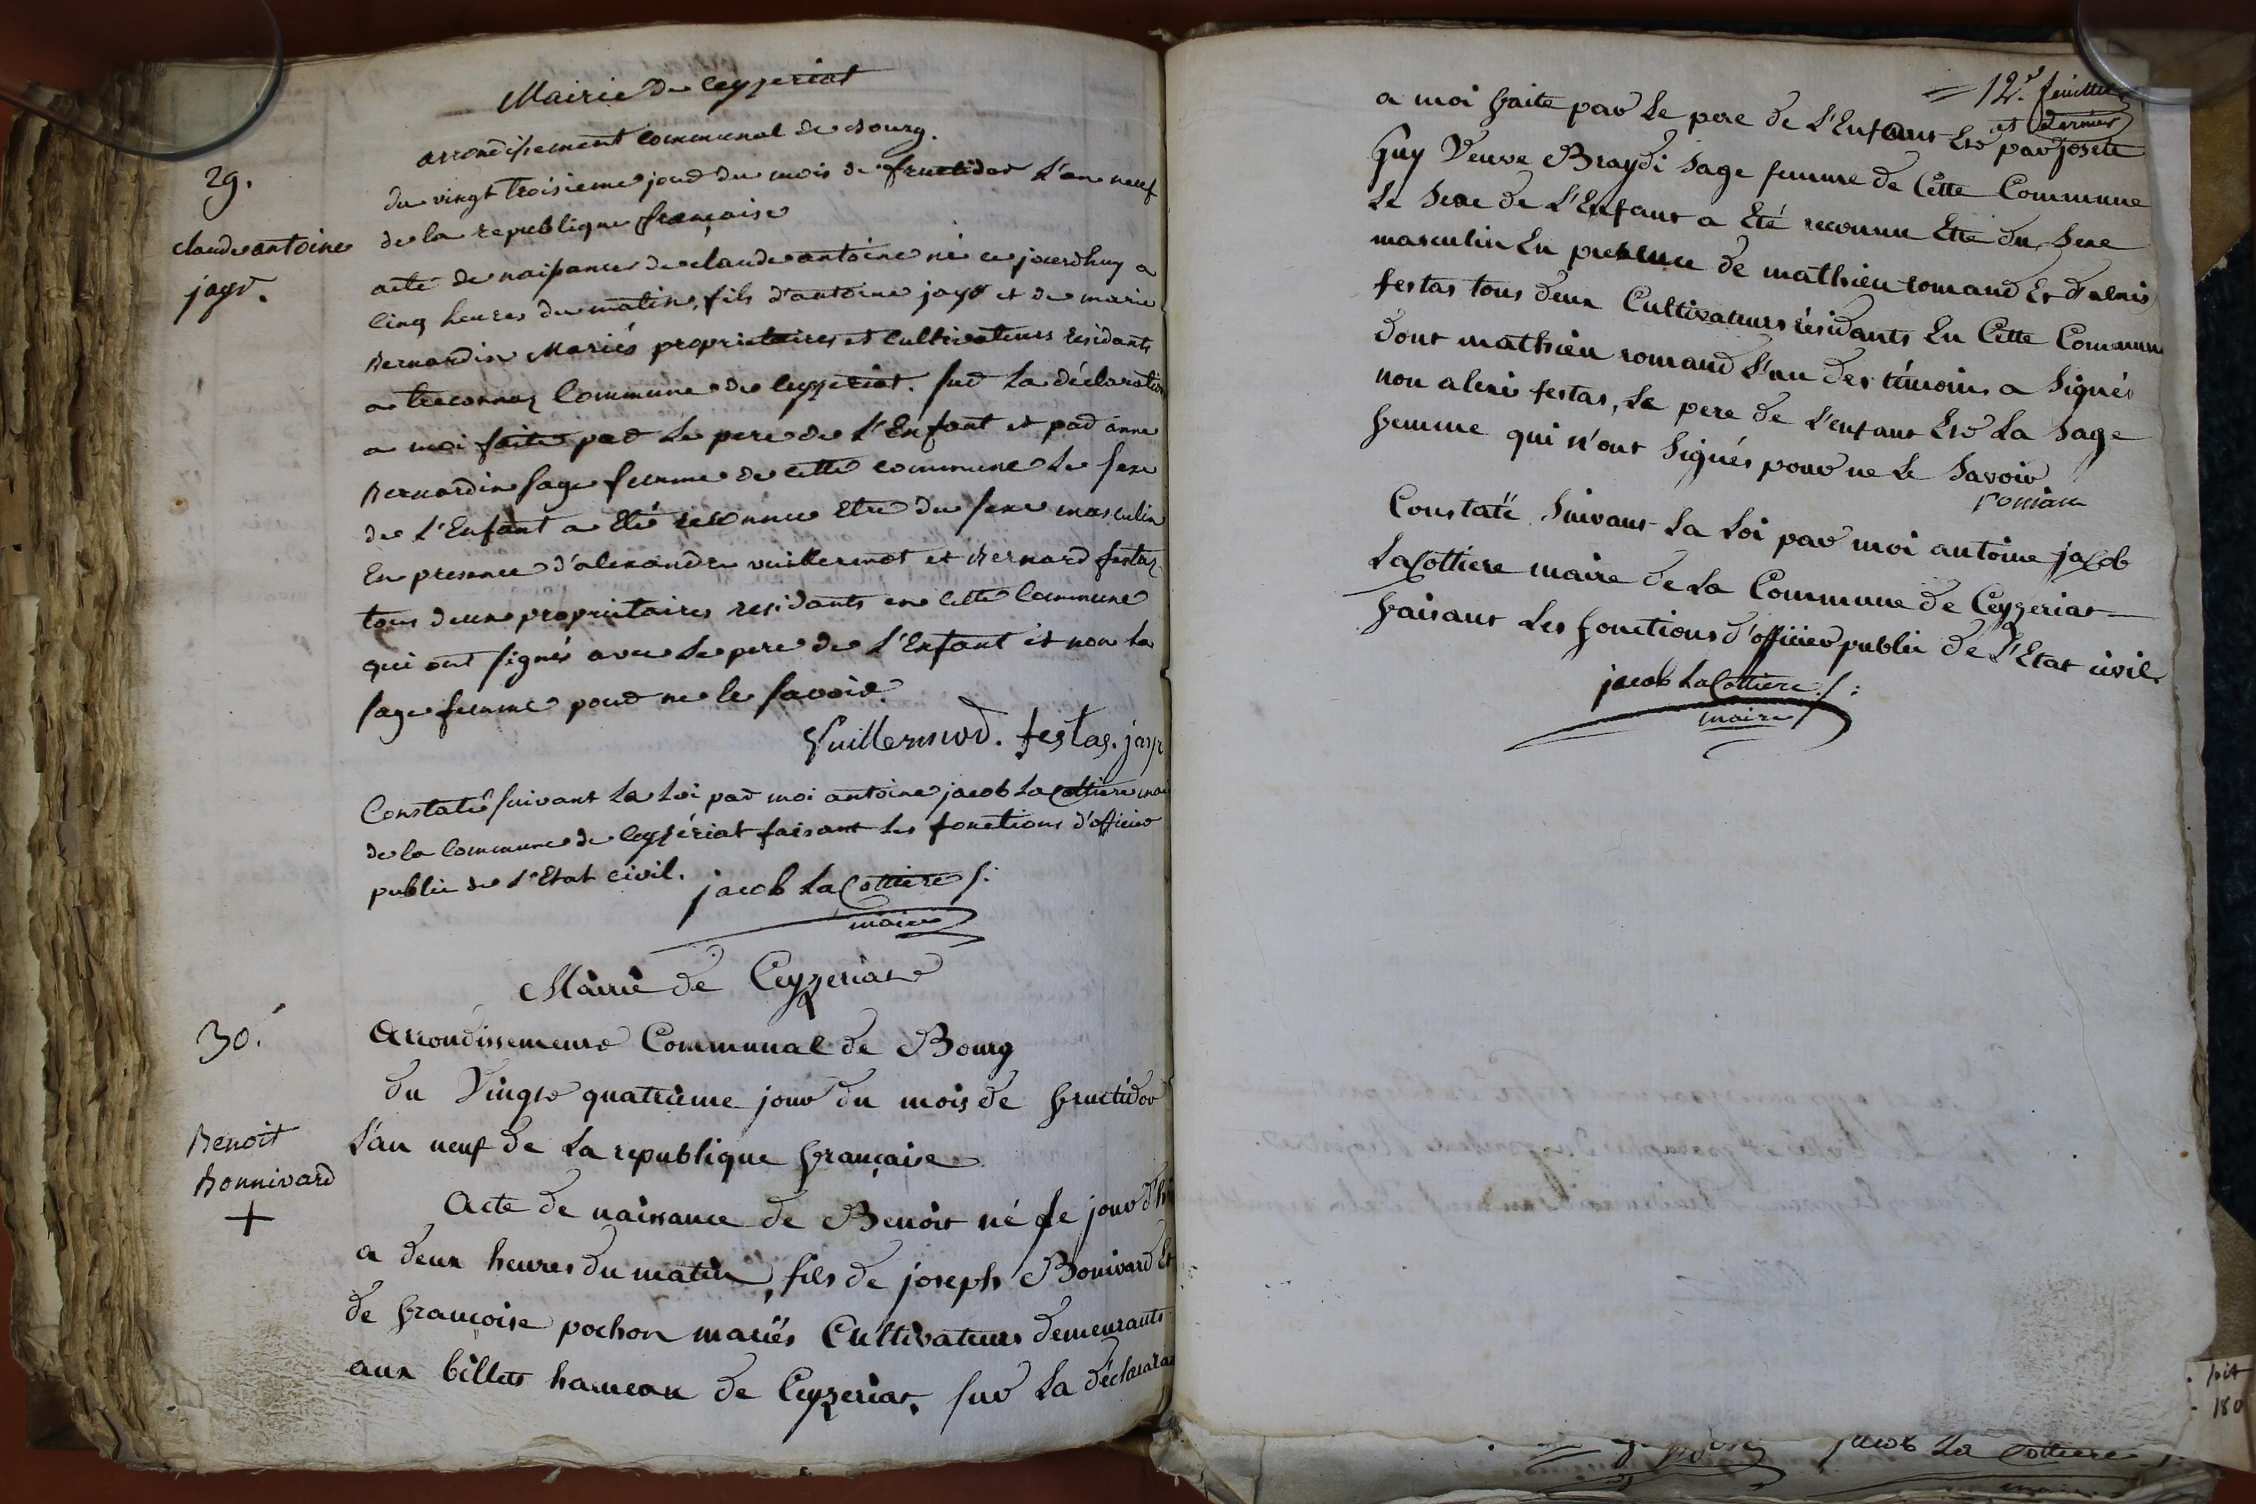 Mairie de Ceyzeriat
arrondissement Communal de Bourg.
29.
du vingt troisieme jour du mois de fructidor L'an neuf
de la republique française
claude antoine
jayr.
acte de naissance de claude antoine né ce jourdhuy a
Cinq heures du matin, fils d'antoine jayr et de marie
Bernardin Mariés propriétaires et Cultivateurs residants
a Commune de Ceyzeriat. sur La déclaration
a moi faite par Le pere de L'Enfant et par anne
Bernardin sage femme de cette commune Le sexe
de L'Enfant a Eté reconnu Etre du sexe masculin
En presence d'alexandre vuillermot et Bernard festaz
tous deux propriétaires residants en Cette Commune
qui ont signés avec Le pere de L'Enfant et non La
sage femme pour ne le savoir.
Vuillermod. festas. jayr
Constaté suivant La Loi par moi antoine jacob La Cottiere mai
de la Commune de Ceyzériat faisant Les fonctions d'officier
public de L'Etat civil.
jacob La Cottiere
maire
Mairie de Ceyzeriat
30.
Arrondissement Communal de Bourg
du Vingt quatrieme jour du mois de fructidor
L'an neuf de La republique française
Benoit
Bonnivard
+
Acte de naissance de Benoit né Le jour d'h
a deux heures du matin, fils de joseph Bonivard Et
de françoise pochon mariés Cultivateurs demeurants
aux billets hameau de Ceyzeriat. sur La déclarat
12.e feuillet
et dernier
a moi faite par Le pere de L'Enfant Et par josete
Guy Veuve Braydi sage femme de Cette Commune
Le Sexe de L'Enfant a Eté reconnu Etre du Sexe
masculin En presence de mathieu romand Et d'alexis
festas tous deux Cultivateurs résidants En Cette Commune
dont mathieu romand L'un des témoins a Signés
non alexi festas, Le pere de L'enfant Et La Sage
femme qui n'ont Signés pour ne Le Savoir
romian
Constaté Suivant La Loi par moi antoine jacob
LaCottiere maire de La Commune de Ceyzeriat
faisant Les fonctions d'officier public de L'Etat civil.
jacob LaCottiere
maire
180
jacob La Cottiere